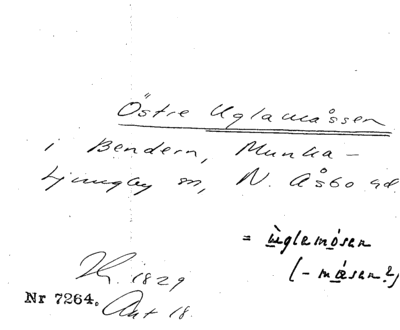 Östre Uglamåssen
i Bendern, Munka-
Ljungby sn, N. Åsbo hd
= ùglamósen
(-mǽsen?)
1829
Nr 7264. Akt 18.